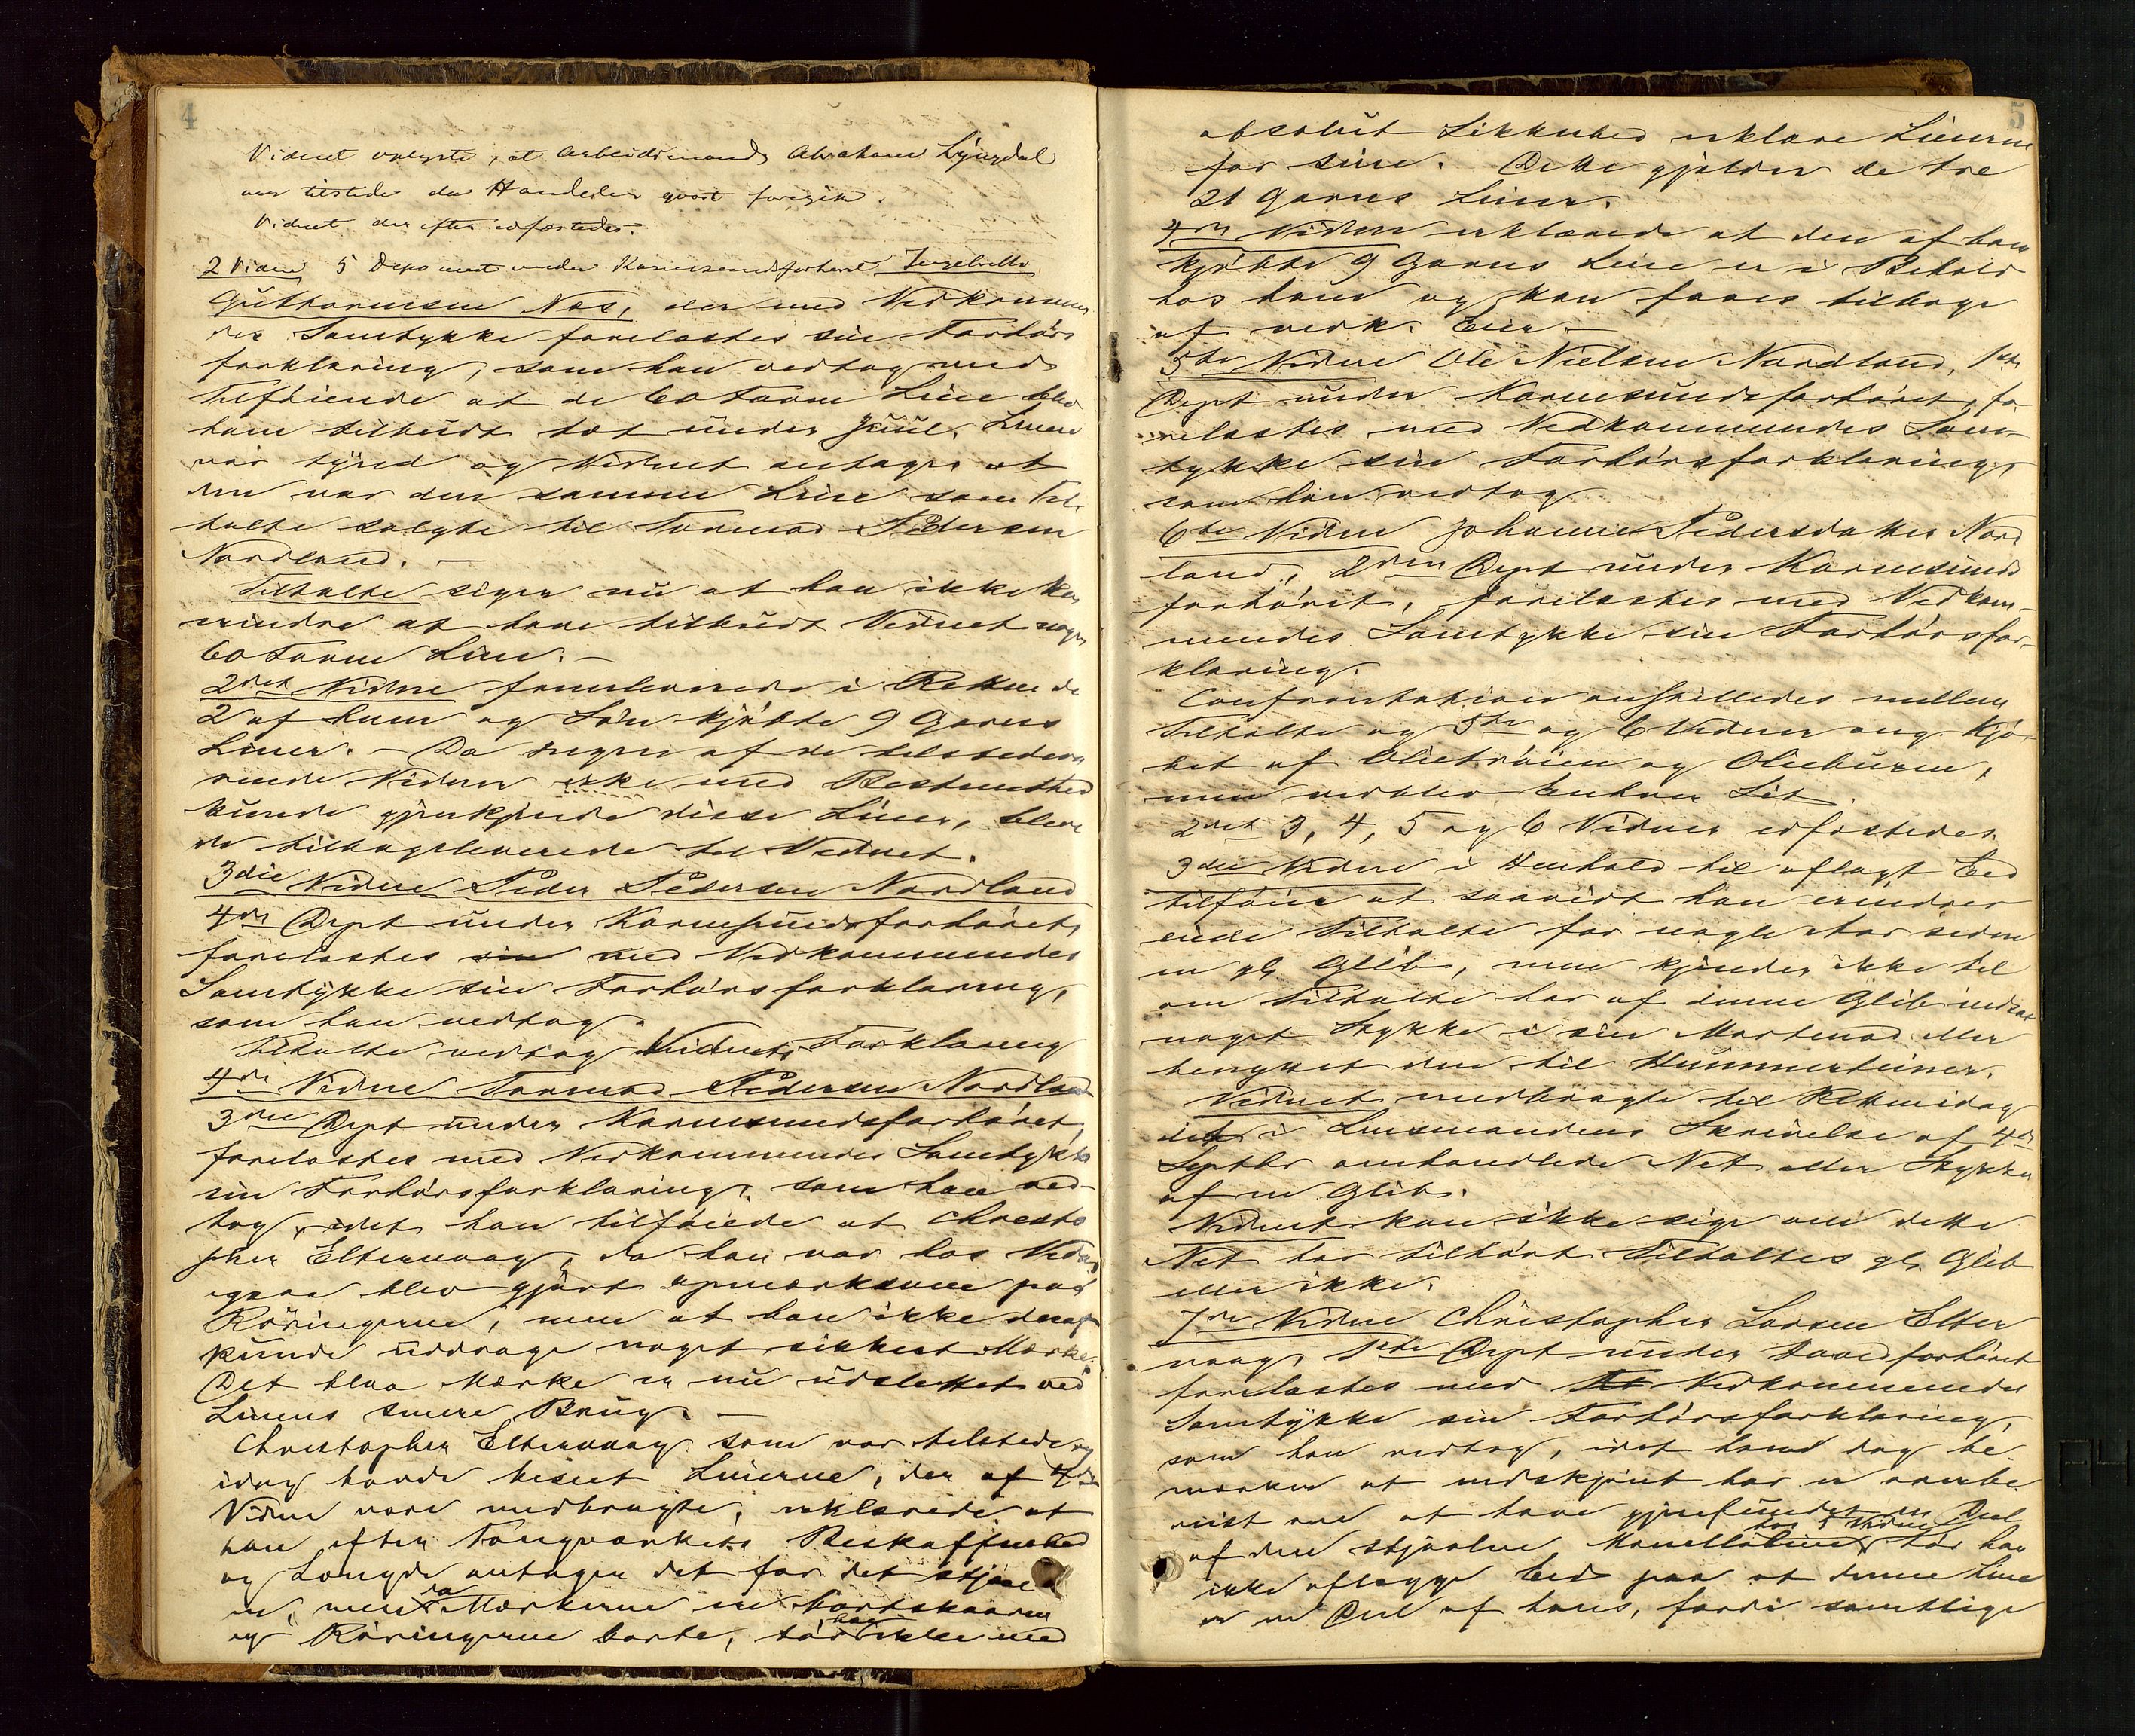 4
Vidnet oplyste, at Arbeidsmand Abraham Lyngdal
var tilstede da Handelen gvart foregik.
Vidnet derefter edfæstedes.
2 Vidne 5 Deponent under Karmsundsforhøret Ingebrikt
Guthormsen Næs, der med Vedkommen
des Samtykke forelæstes sin Forhørs
forklaring, som han vedtog med
Tilføiende at de 60 Favne Line blev
ham tilbudt tæt under Juul. Linen
var tjæred og Vidnet antager at
den var den samme Line som Til-
talte solgte til Tormod Pedersen
Nordland. —
Tiltalte siger nu at han ikke kan
mindes at have tilbudt Vidnet nogen
60 Favne Line. —
2det Vidne fremleverede i Retten de
2 af ham og Søn kjøbte 9 Garns
Liner. — Da ingen af de tilstedevæ
rende Vidner ikke med Bestemthed
kunde gjenkjende disse Liner, bleve
de tilbageleverede til Vidnet.
3die Vidne Peder Pedersen Nordland
4de Dept under Karmsundsforhøret,
forelæstes sin med Vedkommendes
Samtykke sin Forhørsforklaring,
som han vedtog.
Tiltalte vedtog Vidnets Forklaring
4de Vidne Tormod Pedersen Nordland
3die Dept under Karmsundsforhøret,
forelæstes med Vedkommendes Samtykke
sin Forhørsforklaring, som han ved-
tog, idet han tilføiede at Christo
pher Eltervaag, da han var hos Vidnet
ogsaa blev gjort opmærksom paa
Røringerne, men at han ikke deraf
kunde uddrage noget sikkert Mærke.
Det blaa Mærke er nu udslettet ved
Linens senere Brug. —
Christopher Eltervaag som var tilstede og
idag havde beseet Linerne, der af 4de
Vidne vare medbragte, erklærede at
han efter Tougværkets Beskaffenhed
og Længde antager det for det stjaal
ne, men da Mærkerne ere bortskaarne
og Røringerne borte, tør han ikke med
5
absolut Sikkerhed erklære Linerne
for sine. Dette gjelder de tre
21 Garns Liner.
4de Vidne erklærede at den af ham
kjøbte 9 Garns Line er i Behold
hos ham og kan faaes tilbage
af vedk. Eier. —
5te Vidne Ole Nielsen Nordland, 1ste
Dept under Karmsundsforhøret, fo
relæstes med Vedkommendes Sam-
tykke sin Forhørsforklaring,
som han vedtog
6te Vidne Johanne Pedersdatter Nord
land, 2den Dept under Karmsunds
forhøret, forelæstes med Vedkom-
mendes Samtykke sin Forhørsfor-
klaring.
Confrontation anstilledes mellem
Tiltalte og 5te og 6 Vidner ang. Kjø-
bet af Olietrøien og Oliebuxen,
men vedblev Enhver Sit.
2det 3, 4, 5 og 6 Vidner edfæstedes.
3die Vidne i Henhold til aflagt Eed
tilføier at saavidt han erindrer
eiede Tiltalte for nogle Aar siden
en gl. Glib, men kjender ikke til
om Tiltalte har af denne Glib indsat
noget Stykke i sin Mortenod eller
benyttet den til Hummerteiner.
Vidnet medbragte til Retten idag
det i Lensmandens Skrivelse af 4de
Septbr omhandlede Net eller Stykke
af en Glib.
Vidnet kan ikke sige om dette
Net har tilhørt Tiltaltes gl. Glib
eller ikke.
7de Vidne Christopher Larsen Elter
vaag, 1ste Dept under Forhøret
forelæstes med Vedkommendes
Samtykke sin Forhørsforklaring,
som han vedtog, idet han dog be
mærker at endskjønt han er overbe
viist om at have gjenfundet en Deel
af den stjaalne Manillaline hos 4 Vidne tør han
ikke aflægge Eed paa at denne Line
er en Deel af hans, fordi samtlige